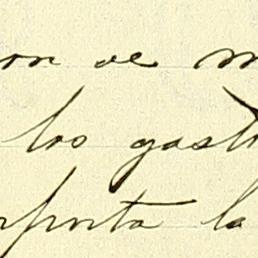 on de m
los gast
rporta la